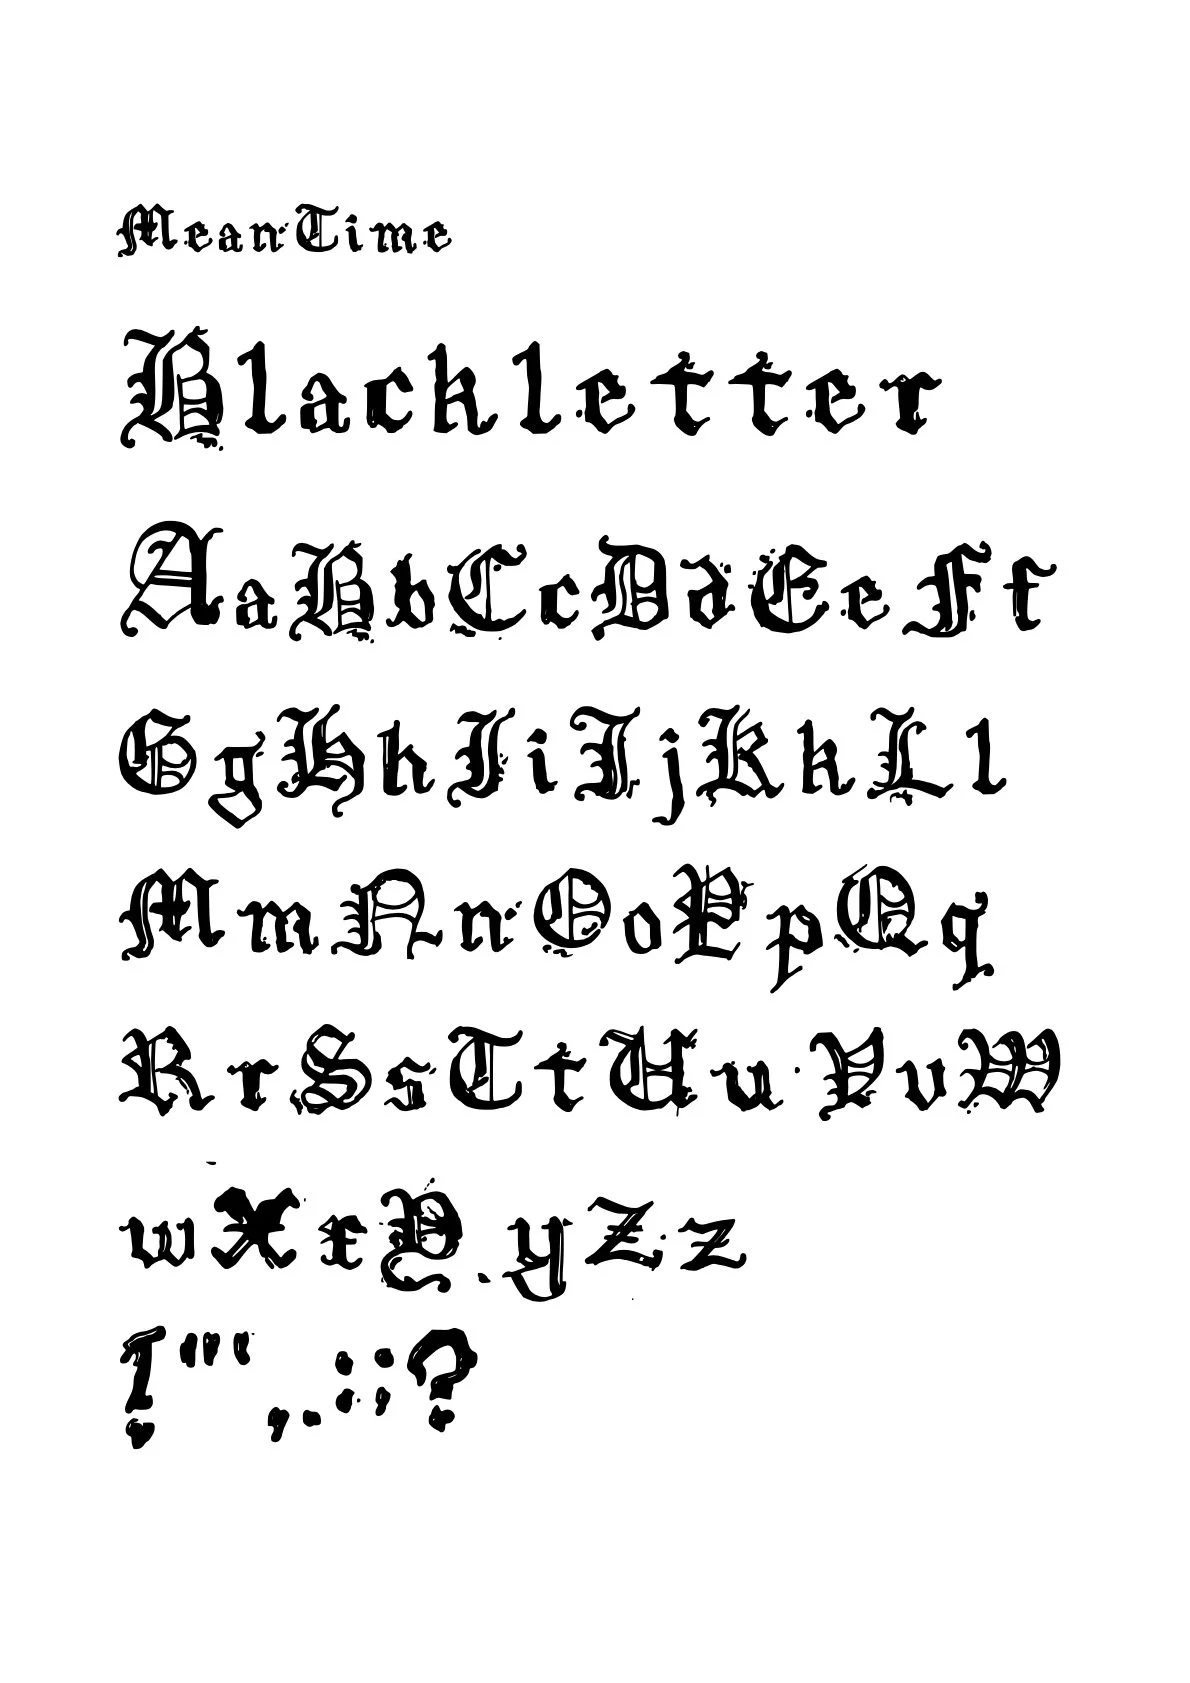 MeanTime
Blackletter
AaBbCcDdEeFf
GgHhIiJjKkLl
MmNnOoPpQq
RrSsTtUuVvW
wXxYyZz
!"',.:;?